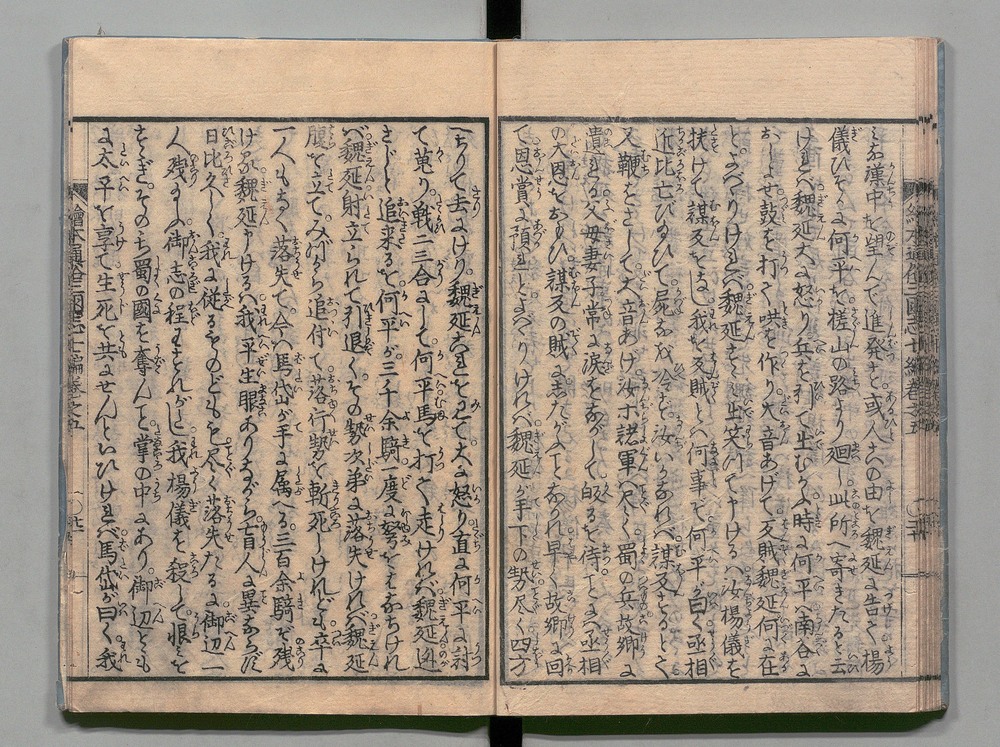 ミな漢中を望んで進発す或人この由を魏延に告て楊
儀ひそかに何平を槎山の路より廻し此所へ寄きたると云
けれバ魏延大に怒り兵を引て出むかふ時に何平ハ南谷に
おしよせ鼓を打て吶を作り大音あげて反賊魏延何に在
とよバりけれバ魏延すゝみ出笑ふてやけるハ汝楊儀を
扶けて謀反をはし我を反賊とハ何事ぞ何平が曰く丞相
近比亡びたまひて屍なを冷ず汝いかなれバ謀反するとて
又鞭をさして大音あげ汝ホ諸軍ハ尽く蜀の兵故郷に
遺れる父母妻子常に涙をながして皈るを待てり丞相
の大恩をおもひ謀反の賊に志たがふことなかれ早く故郷に回
て恩賞に預れとよバりけれバ魏延が手下の勢尽く四方
へちりて去にけり魏延これをみて大に怒り直に何平に討
て蒐り戦二三合にして何平馬を打て走けれバ魏延迯
さじと追来るを何平が三千余騎一度に弩をはなちけれ
バ魏延射立られて引退くその勢次第に落失けれバ魏延
腹を立てみづから追付て落行勢を斬死しけれども卒に
一人もなく落失て今ハ馬岱が手に属へる三百余騎ぞ残
ける魏延やけるハ我平生眼ありながら盲人に異ならず
日比久しく我に従るものども尽く落失たるに御辺一
人残る御志の程わすれがたし我楊儀を殺して恨を
そゝぎそのゝち蜀の國を奪んこと掌の中にあり御辺とも
に太平を享て生死を共にせんといひけれバ馬岱が曰く我
繪本通俗三國志七編巻之五